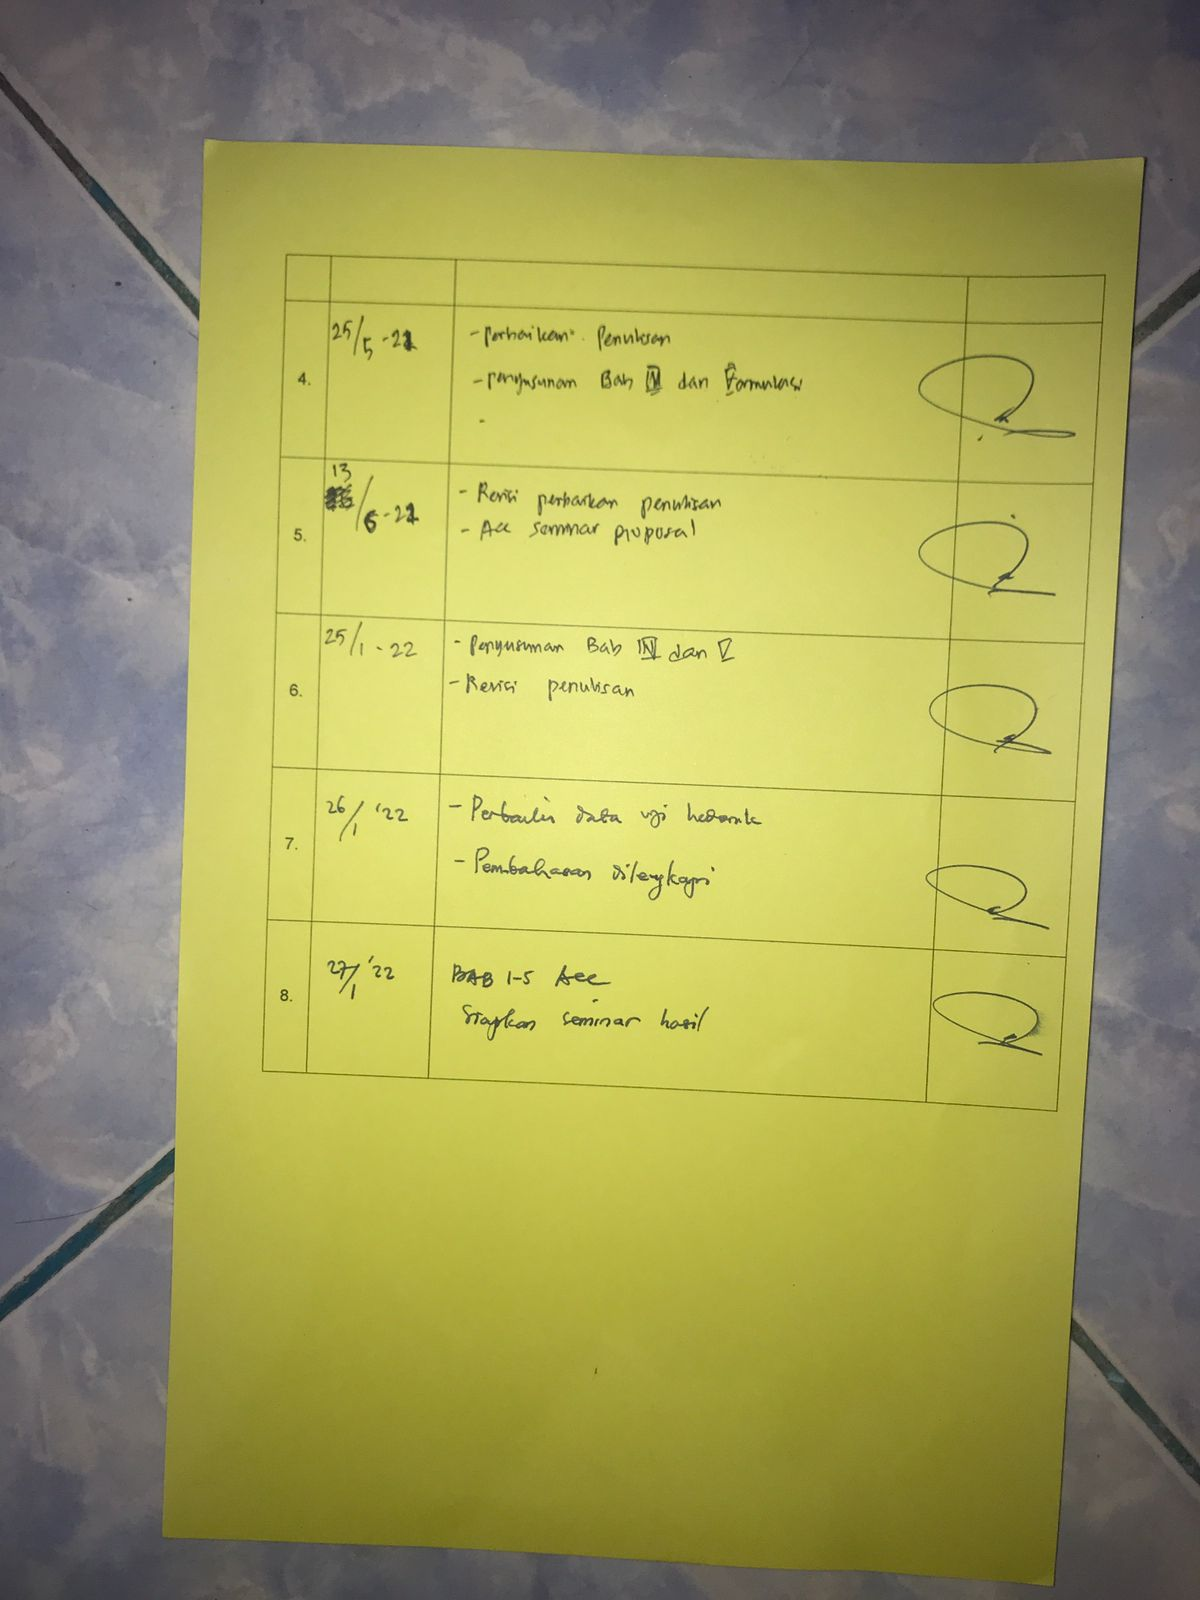 4.
25/5 -21
- perbaikan penulisan
- penyusunan Bab IV dan Formulasi
5.
13/6 -21
- Revisi perbaikan penulisan
- Acc seminar proposal
6.
25/1 - 22
- Penyusunan Bab IV dan V
- Revisi penulisan
7.
26/1 '22
- Perbaiki data uji hedonik
- Pembahasan dilengkapi
8.
27/1 '22
BAB 1-5 Acc
Siapkan seminar hasil